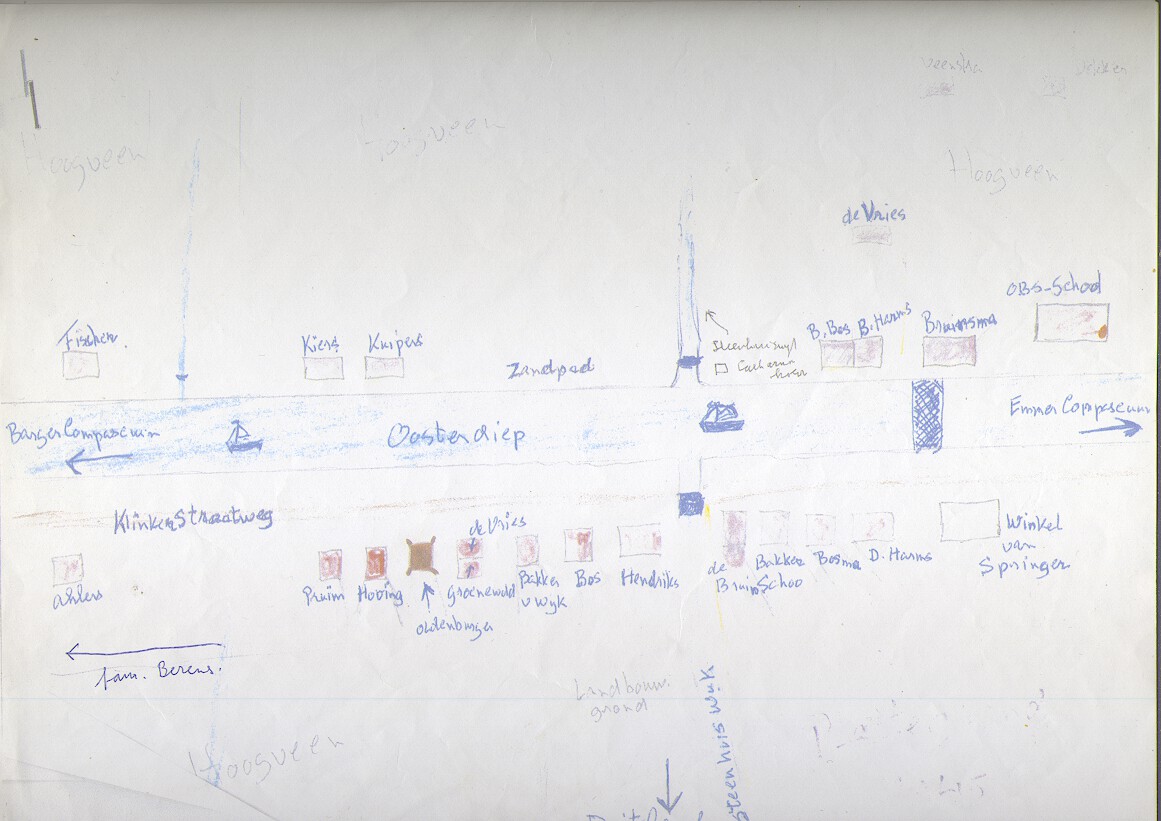 Veenstra
Hoogveen
Hoogveen
Hoogveen
de Vries
OBS-School
Fischer
Kiers
Kuipers
Zandpad
B. Bos
B. Harms
Bruinsma
Barger Compascuum
Oosterdiep
Emmer Compascuum
Klinker Straatweg
Ahlers
Pruim
Hoving
de Vries
Groenewold
Oldenburger
Bakker
v Wyk
Bos
Hendriks
de
Bruin
Bakker
Schoo
Bosma
D. Harms
Winkel
van
Springer
fam. Berens.
Landbouw.
grond
Steenhuis Wijk
Hoogveen